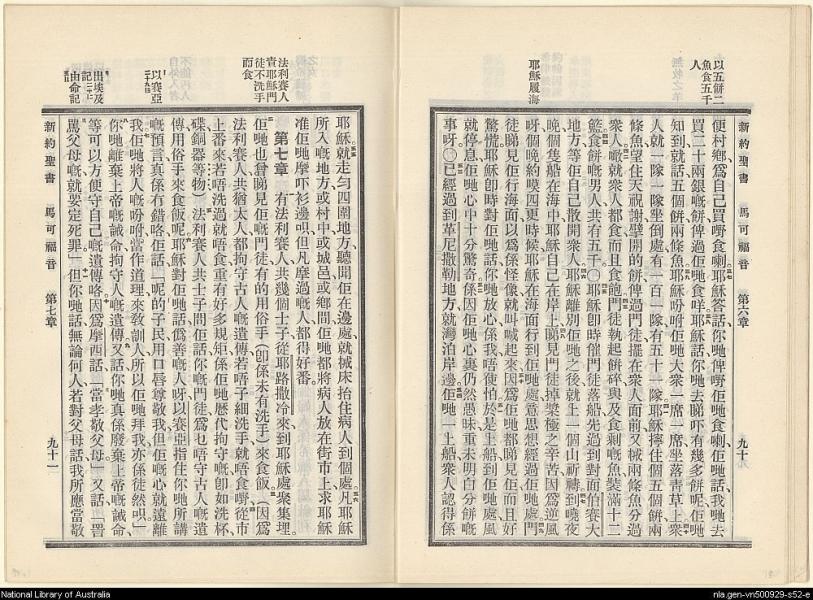 以五餅二
魚食五千
人
耶穌履海
新約聖書 馬可福音 第六章 九十
便村鄉爲自己買嘢食喇耶穌答話你哋俾嘢佢哋食喇佢哋話我哋去
買二十兩銀嘅餅俾過佢哋食咩耶穌話你哋去睇吓有幾多餅呢佢哋
知到就話五個餅兩條魚耶穌吩咐佢哋大衆一席一席坐落靑草上衆
人就一隊一隊坐倒處有一百一隊有五十一隊耶穌擰住個五個餅兩
條魚望住天祝謝擘開的餅俾過門徒擺在衆人面前又𢬿兩條魚分過
衆人嗽就衆人都食而且食飽門徒執起餅碎與及食剩嘅魚裝滿十二
籃食餅嘅男人共有五千〇耶穌卽時催門徒落船先過到對面伯賽大
地方等佢自己散開衆人耶穌離別佢哋之後就上一個山祈禱到曉夜
晚個隻船在海中耶穌自己在岸上睇見門徒掉槳極之辛苦因爲逆風
呀個晚約嘆四更時候耶穌在海面行到佢哋處意思想經過佢哋處門
徒睇見佢行海面以爲係怪像就叫喊起來因爲佢哋都睇見佢而且好
驚慌耶穌卽時對佢哋話你哋放心係我唔使怕於是上船到佢哋處風
就停息佢哋心中十分驚奇係因佢哋心裏仍然愚昧重未明白分餅嘅
事呀〇已經過到革尼撒勒地方就灣泊岸邊佢哋一上船衆人認得係
法利賽人
責耶穌門
徒不洗手
而食
以賽亞
出埃及
記
由命記
新約聖書 馬可福音 第七章 九十一
耶穌就走勻四圍地方聽聞佢在邊處就𢬿床抬住病人到個處凡耶穌
所入嘅地方或村中或城邑或鄉間佢哋都將病人放在街市上求耶穌
准佢哋摩吓衫邊唄但凡摩過嘅人都得好番
第七章 有法利賽人共幾個士子從耶路撒冷來到耶穌處聚集埋
佢哋也曾睇見佢嘅門徒有的用俗手(卽係未有洗手)來食飯(因爲
法利賽人共猶太人都拘守古人嘅遺傳若唔子細洗手就唔食嘢從市
上番來若唔洗過就唔食重有好多規矩係佢哋歷代拘守嘅卽如洗杯
碟銅器等物)法利賽人共士子問佢話你嘅門徒爲乜唔守古人嘅遺
傳用俗手來食飯呢耶穌對佢哋話僞善嘅人呀以賽亞指住你哋所講
嘅預言眞係有錯咯佢話「呢的子民用口唇尊敬我但佢嘅心就遠離
我佢哋將人嘅吩咐當作道理來敎訓人所以佢哋拜我亦係徒然唄」
你哋離棄上帝嘅誡命拘守人嘅遺傳又話你哋眞係廢棄上帝嘅誡命
等可以方便守自己嘅遺傳咯因爲摩西話「當孝敬父母」又話「詈
罵父母嘅就要定死罪」但你哋話無論何人若對父母話我所應當敬
National Library of Australia
nla.gen-vn500929-s52-e